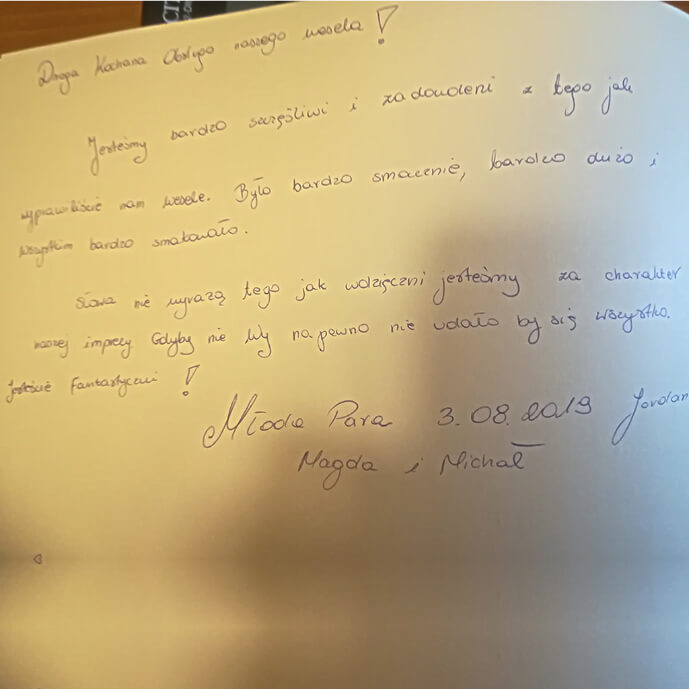 Droga Kochana Obsługo naszego wesela!
Jesteśmy bardzo szczęśliwi i zadowoleni z tego jak
wyprawiliście nam wesele. Było bardzo smacznie, bardzo dużo i
wszystkim bardzo smakowało.
Słowa nie wyrażą tego jak wdzięczni jesteśmy za charakter
naszej imprezy Gdyby nie Wy na pewno nie udało by się wszystko.
Jesteście fantastyczni!
Młoda Para 3.08.2019 Jordan
Magda i Michał